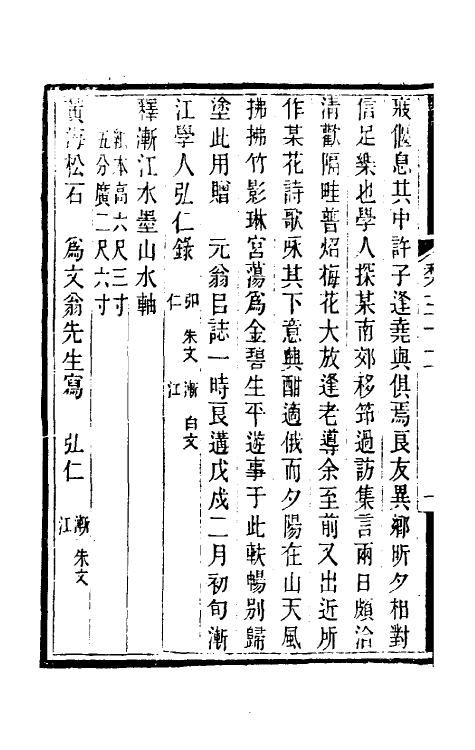 寂偃息其中許子逢堯與俱焉良友異鄉昕夕相對
信足樂也學人探某南郊移笻過訪集言兩日頗洽
清歡隔畦普炤梅花大放逢老導余至前又出近所
作某花詩歌咏其下意興酣適俄而夕陽在山天風
拂拂竹影琳宮蕩爲金碧生平遊事于此軼暢別歸
塗此用贈 元翁吕誌一時良遘戊戌二月初旬漸
江學人弘仁錄 卯仁 朱文 漸江 白文
釋漸江水墨山水軸
紙本高六尺三寸
五分廣二尺六寸
黃海松石 爲文翁先生寫 弘仁 漸江 朱文